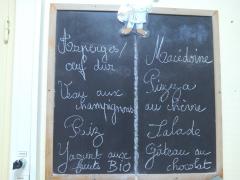 Asperges/
œuf dur
Veau aux
champignons
Riz
Yaourt aux
fruits BIO
Macédoine
Pizza
au chèvre
Salade
Gâteau au
chocolat